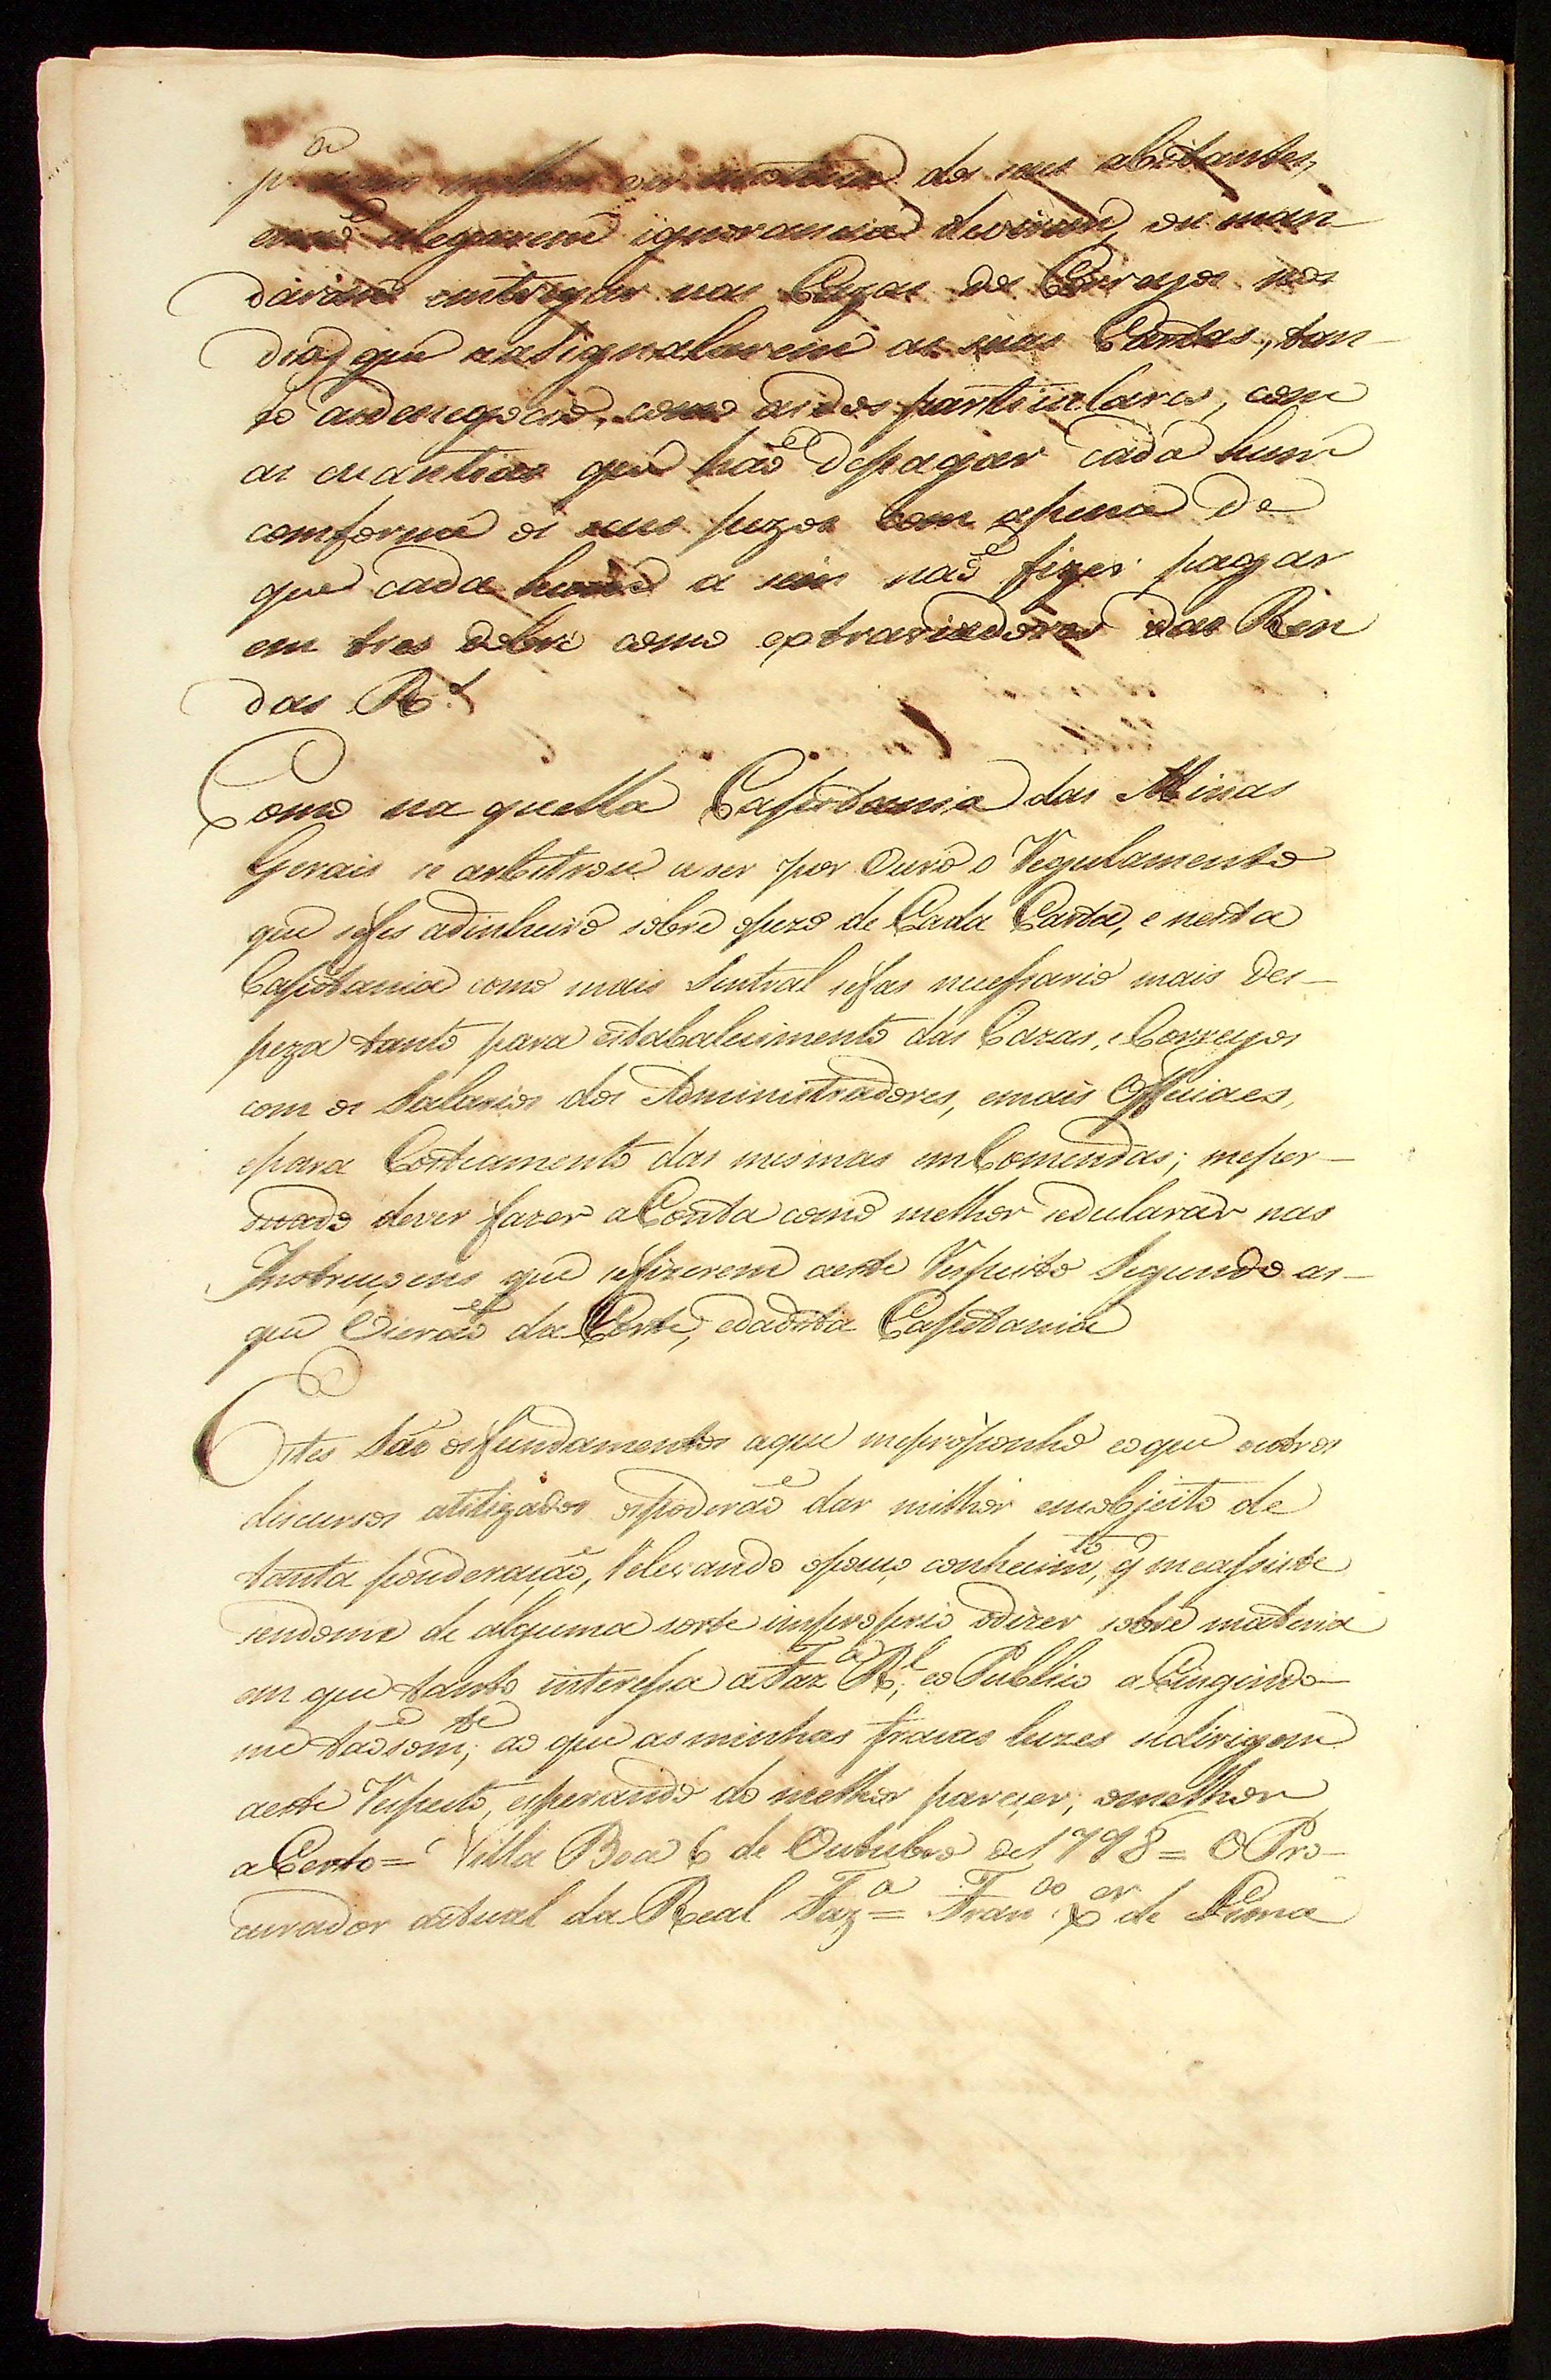 p.ª dos seus abitantes,
enaõ alegarem ignorancia deverem, ou man-
daraõ entregar nas Cazas do Correyos nos
dias que asignalarem as suas Cartas, tan-
to asdenegocio, como asdos particulares, com
as cuantias que haõ depagar cada hum
comforme os seus pezos com apena de
que cada hum a sim naõ fizer pagar
em tres dobro como extraviadores das Ren
das R.s
Como na quella Capitania das Minas
Gerais se arbitrou a ser por Ouro o Regulamento
que sefes adinheiro sobre opezo de Cada Carta, e nesta
Capitania como mais Sentral sefas necessario mais des-
peza tanto para estabalecimento das Cazas, eCorreyos
com os Salarios dos Administradores, emais Officiaes,
epara Costeamento das mesmas emComendas; meper-
suado dever fazer aConta como melhor sedularar nas
Instruçoens que sefizerem aeste Respeito Segundo as-
que Vieraõ da Corte, edadita Capitania
Estes Saõ osfundamentos aque mepropônho eoque outros
discursos atilizados opoderaõ dar milhor emobjeito de
tanta ponderaçaõ, Relevando opouco conhecim.to, q meassiste
sendome de alguma sorte improprio odizer sobre materia
em que tanto interessa aFaz.a R.l, eo Publico aCingindo-
me taõsom.te; ao que asminhas fracas luzes sedirigem
aeste Respeito, esperando do melhor pareçer, omelhor
aCerto = Villa Boa 6 de Outubro de 1798 = O Pro-
curador actual da Real Faz.a = Fran.co X.er de Lima